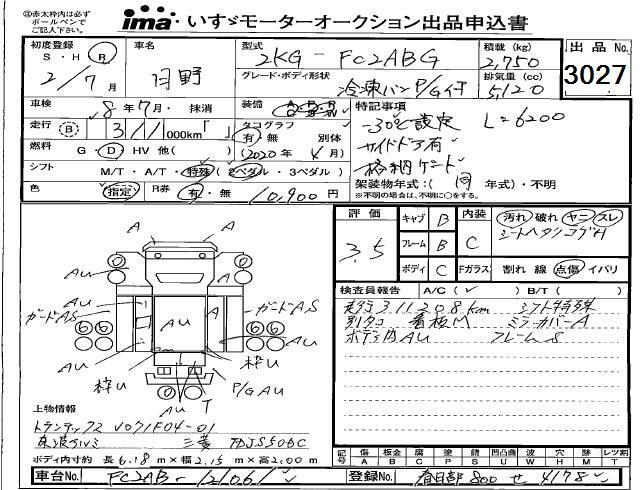 ※赤太枠内は必ず
ボールペンで
ご記入下さい。
ima いすゞモーターオークション出品申込書
初度登録
S・H R
2/7月
車名
日野
型式
2KG-FC2ABG
積載(kg)
2,750
出品No.
3027
グレード・ボディ形状
冷凍バン P/G付
排気量(cc)
5,120
車検
8年7月・抹消
装備
走行 B 311 000km
タコグラフ
有・無 別体
(2020年4月)
特記事項
-30℃設定 L=6200
サイドドア有
格納ゲート
架装物年式:(同 年式)・不明
※不明の場合は、不明に○をする。
燃料
G・D HV 他( )
シフト
M/T・A/T・特殊(2ペダル・3ペダル)
色
指定
R券
有・無
10,900円
評価
3.5
キャブ B
フレーム B
ボディ C
内装 C
Fガラス
汚れ 破れ ヤニ スレ
シートヘタリコゲA
割れ 線 点傷 イバリ
検査員報告 A/C( ) B/T( )
走行311208km シフト特殊
別タコ 看板M ミラーカバーA
ボディ内AU フレームS
A
AU
A
AU
ガードAS
AU
ガードAS
6 6
6 6
AU
A
A
枠U
枠U
T
P/G AU
上物情報
トランテックス V071F04-01
東プレ
三菱 TDJS50BC
ボディ内寸約 長6.18m×幅2.15m×高2.00m
記号
傷 A
板金 B
腐 C
塗 P
塗 S
錆
凹 U
波 W
穴 H
跡 M
レツ割 T
車台No. FC2AB-121061
登録No. 春日部 800 せ 4178